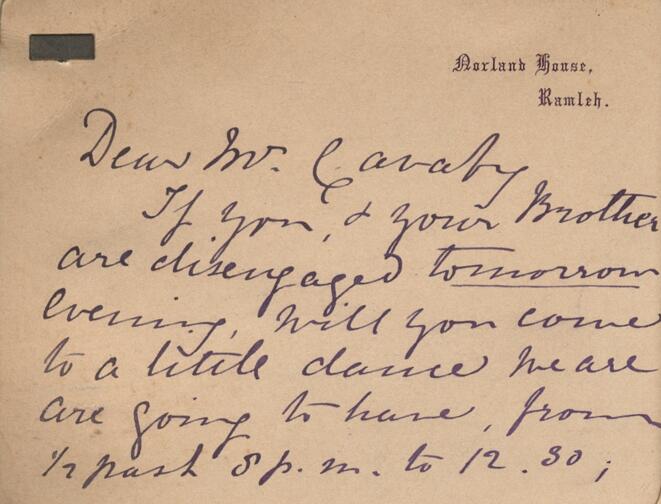 Norland House,
Ramleh.
Dear Mr. Cavafy
If you, & your Brother
are disengaged tomorrow
evening, will you come
to a little dance we are
are going to have, from
1/2 past 8 p.m. to 12.30;